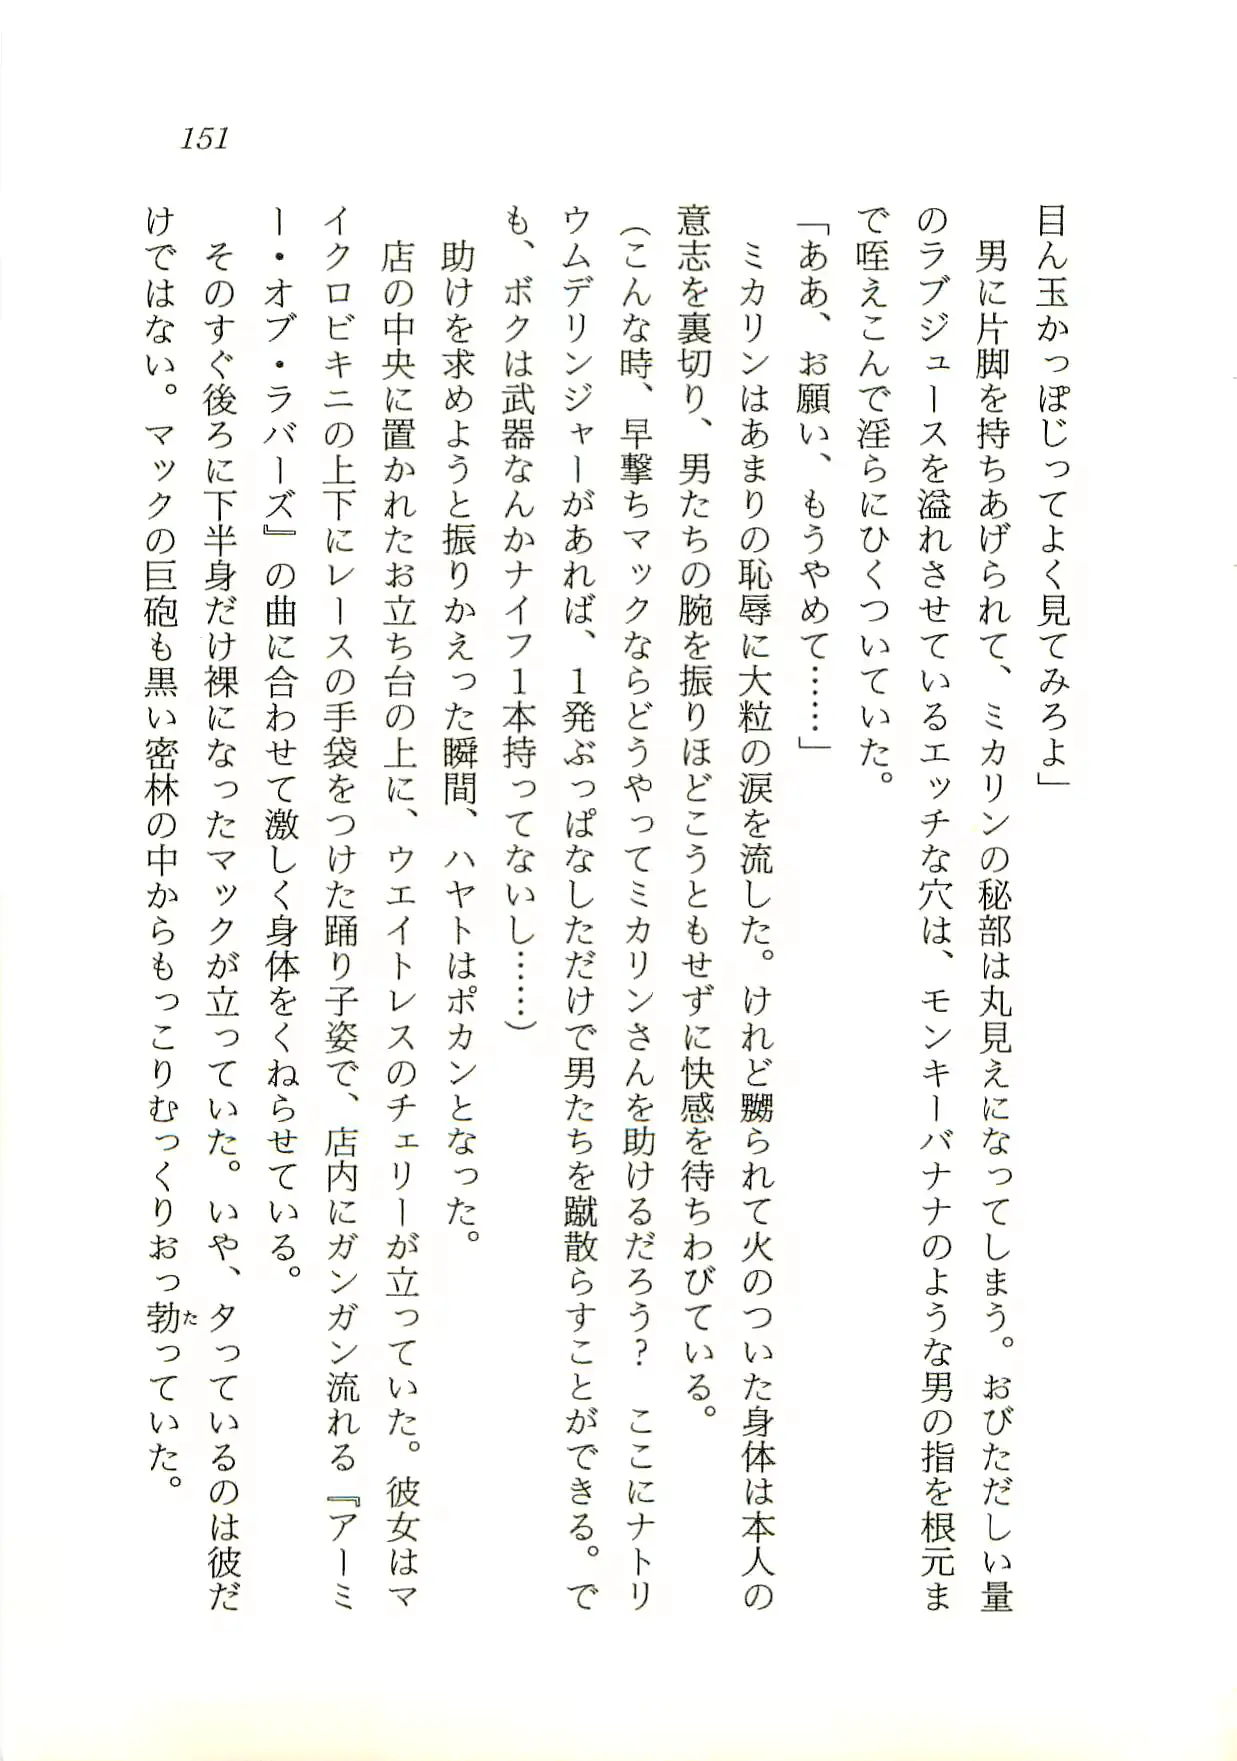 151
目ん玉かっぽじってよく見てみろよ」
　男に片脚を持ちあげられて、ミカリンの秘部は丸見えになってしまう。おびただしい量
のラブジュースを溢れさせているエッチな穴は、モンキーバナナのような男の指を根元ま
で咥えこんで淫らにひくついていた。
「ああ、お願い、もうやめて……」
　ミカリンはあまりの恥辱に大粒の涙を流した。けれど嬲られて火のついた身体は本人の
意志を裏切り、男たちの腕を振りほどこうともせずに快感を待ちわびている。
（こんな時、早撃ちマックならどうやってミカリンさんを助けるだろう？　ここにナトリ
ウムデリンジャーがあれば、１発ぶっぱなしただけで男たちを蹴散らすことができる。で
も、ボクは武器なんかナイフ１本持ってないし……）
　助けを求めようと振りかえった瞬間、ハヤトはポカンとなった。
　店の中央に置かれたお立ち台の上に、ウエイトレスのチェリーが立っていた。彼女はマ
イクロビキニの上下にレースの手袋をつけた踊り子姿で、店内にガンガン流れる『アーミ
ー・オブ・ラバーズ』の曲に合わせて激しく身体をくねらせている。
　そのすぐ後ろに下半身だけ裸になったマックが立っていた。いや、タっているのは彼だ
けではない。マックの巨砲も黒い密林の中からもっこりむっくりおっ勃（た）っていた。